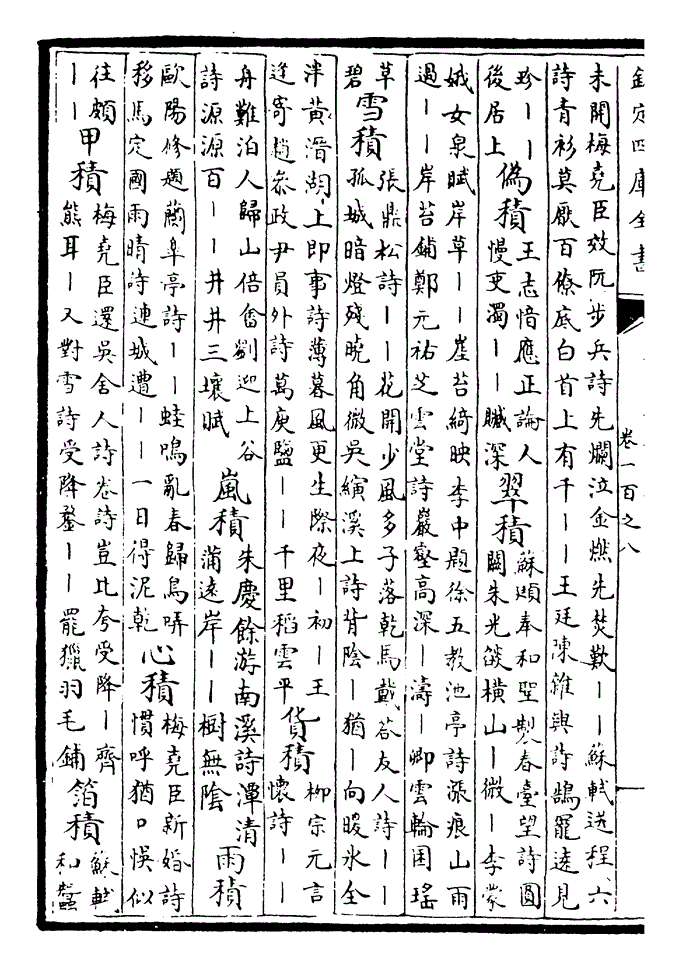 欽定四庫全書
卷一百之八
未開梅堯臣效阮步兵詩先爛泣金燃先焚歎||蘇軾送程六
詩青衫莫厭百僚底白首上有千||王廷陳雜興詩鵠罷遠見
珍||
後居上
偽積
王志愔應正論人
慢吏濁||贓深
翠積
蘇頲奉和聖製春臺望詩圓
闕朱光燄横山|微|李蒙
娥女泉賦岸草||崖苔綺映李中題徐五教池亭詩漲痕山雨
過||岸苔鋪鄭元祐芝雲堂詩巖壑高深|濤|卿雲輪囷瑶
草
碧
雪積
張鼎松詩||花開少風多子落乾馬戴答友人詩||
孤城暗燈殘曉角微吳縯溪上詩背陰|猶|向暖氷全
泮黄溍湖上即事詩薄暮風更生際夜|初|王
逢寄趙叅政尹員外詩萬庾鹽||千里稻雲平
貨積
柳宗元言
懷詩||
舟難泊人歸山倍畬劉迎上谷
詩源源百||井井三壤賦
嵐積
朱慶餘游南溪詩潭清
蒲遠岸||樹無陰
雨積
歐陽修題臯亭詩||蛙鳴亂春歸鳥哢
移馬定國雨晴詩連城遭||一日得泥乾
心積
梅堯臣新婚詩
慣呼猶口悞似
往頗
||
甲積
梅堯臣還吳舍人詩卷詩豈比夸受降|齊
熊耳|又對雪詩受降鏊||罷獵羽毛鋪
箔積
蘇軾
和蠶